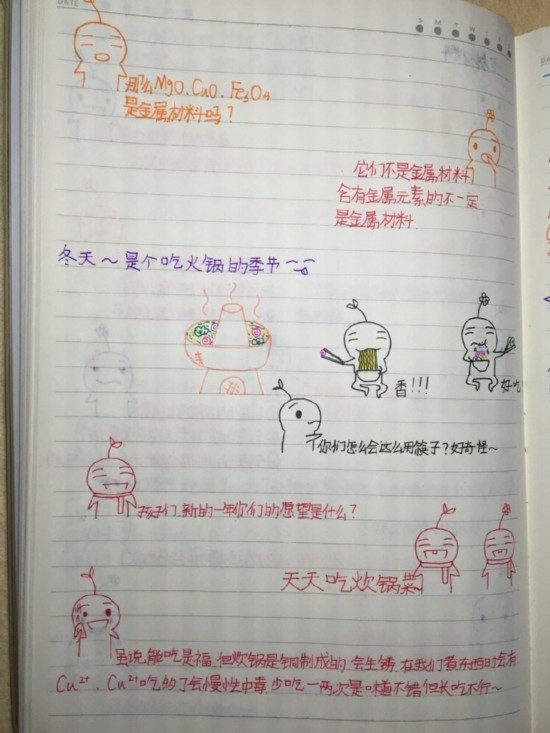 DATE
S M T W T F S
那么MgO、CuO、Fe₃O₄
是金属材料吗?
它们不是金属材料,
含有金属元素的不一定
是金属材料
冬天~是个吃火锅的季节~
香!!!
好吃
你们怎么会这么用筷子?好奇怪~
孩子们,新的一年你们的愿望是什么?
天天吃炊锅菜
虽说能吃是福,但炊锅是铜制成的,会生锈,在我们煮东西时会有
Cu²⁺、Cu²⁺吃多了会慢性中毒,少吃一两次是味道不错但长吃不行~